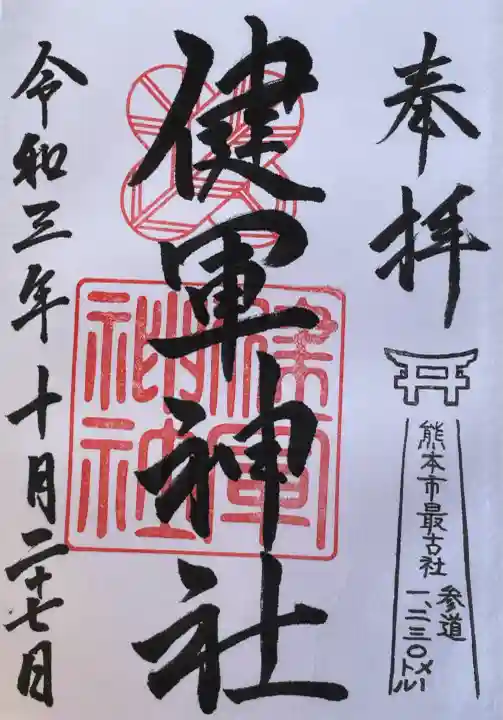 奉拝
熊本市最古社
参道
一、二三〇メートル
健軍神社
健軍
神社
令和三年十月二十七日